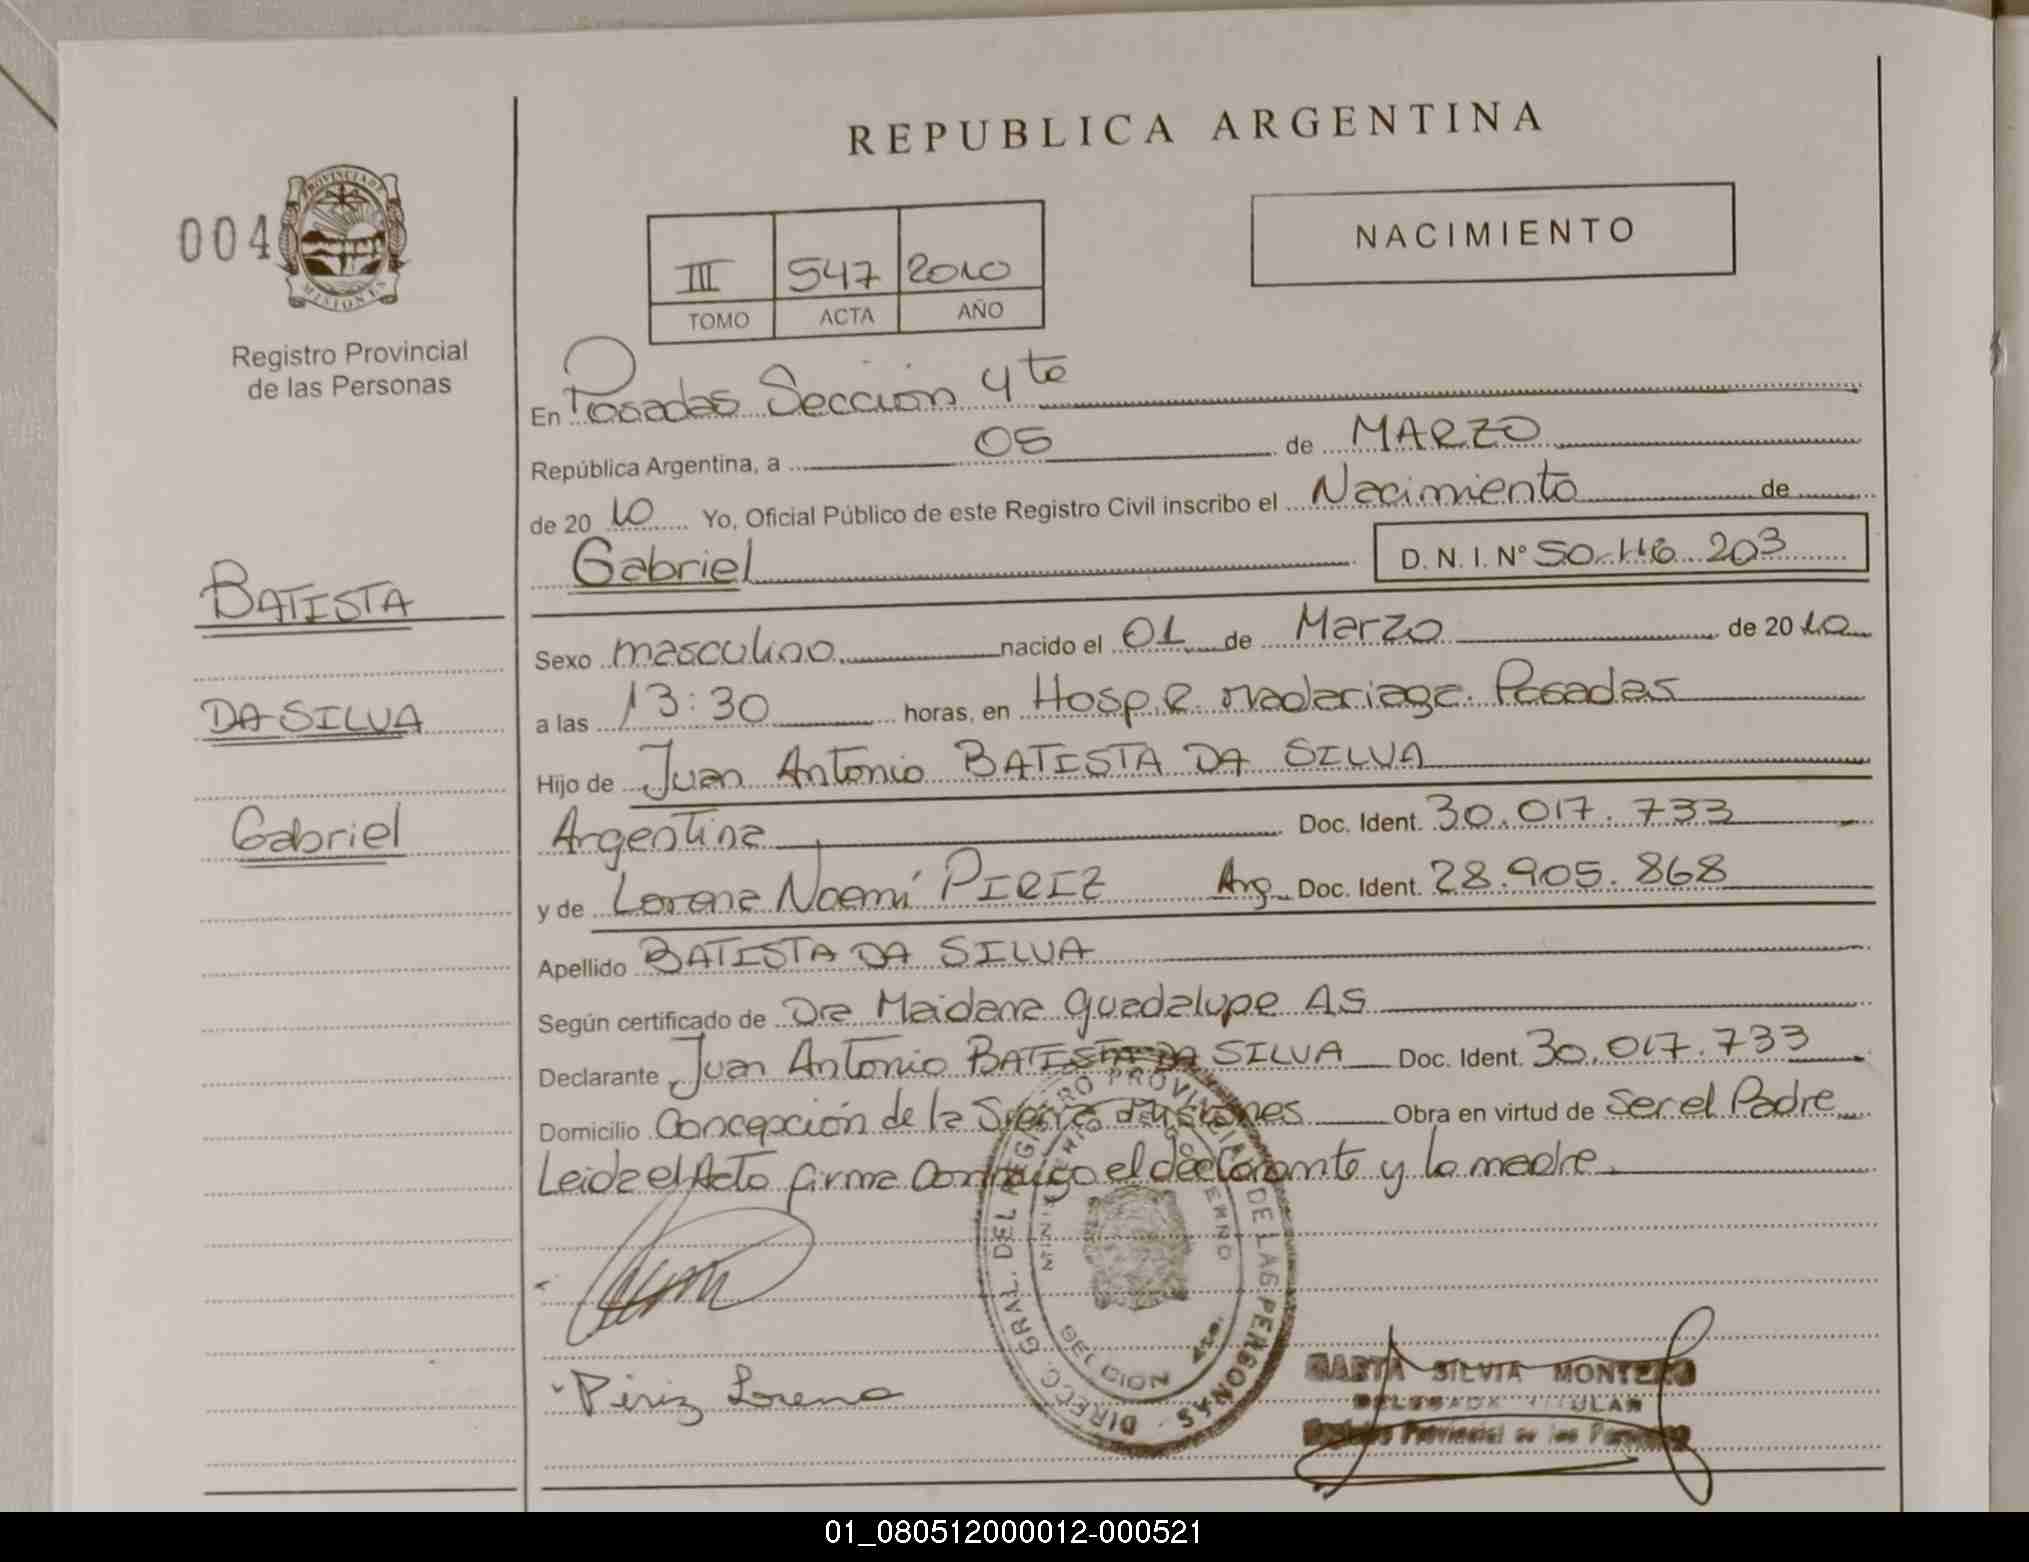 REPUBLICA ARGENTINA
004
PROVINCIA DE
MISIONES
Registro Provincial
de las Personas
NACIMIENTO
III 547 2010
TOMO ACTA AÑO
En Posadas Sección 4ta
República Argentina, a 05 de MARZO
de 20 10 Yo, Oficial Público de este Registro Civil inscribo el Nacimiento de
Gabriel D. N. I. N° 50.116.203
BATISTA
DA SILVA
Gabriel
Sexo masculino nacido el 01 de Marzo de 20 10
a las 13:30 horas, en Hosp. R. Madariaga. Posadas
Hijo de Juan Antonio BATISTA DA SILVA
Argentina Doc. Ident. 30.017.733
y de Lorena Noemí PIRIZ Arg. Doc. Ident. 28.905.868
Apellido BATISTA DA SILVA
Según certificado de Dra Maidana Guadalupe A.S
Declarante Juan Antonio BATISTA DA SILVA Doc. Ident. 30.017.733
Domicilio Concepción de la Sierra Misiones Obra en virtud de ser el Padre
Leida el Acta firma conmigo el declarante y la madre.
DIRECC. GRAL. DEL REGISTRO PROVINCIAL DE LAS PERSONAS
MINISTERIO DE GOBIERNO
Piriz Lorena
MARTA SILVIA MONTERO
DELEGADA TITULAR
Registro Provincial de las Personas
01_080512000012-000521